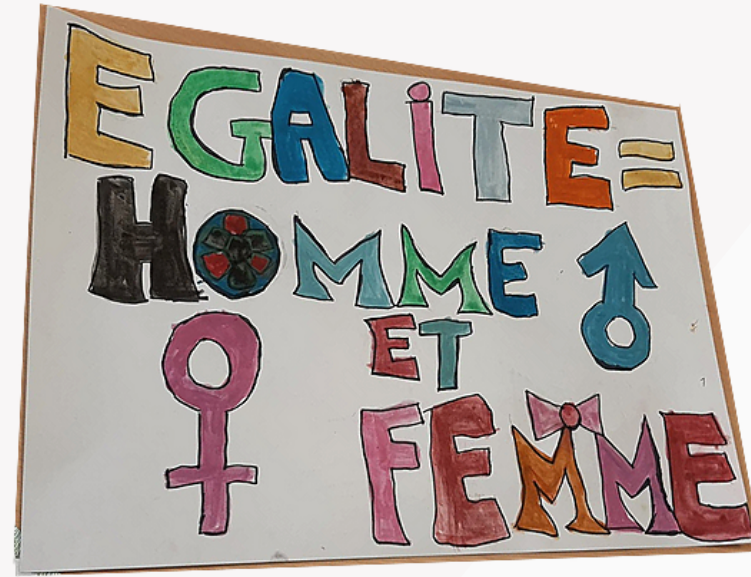 EGALiTE =
HOMME ♂
ET
♀ FEMME